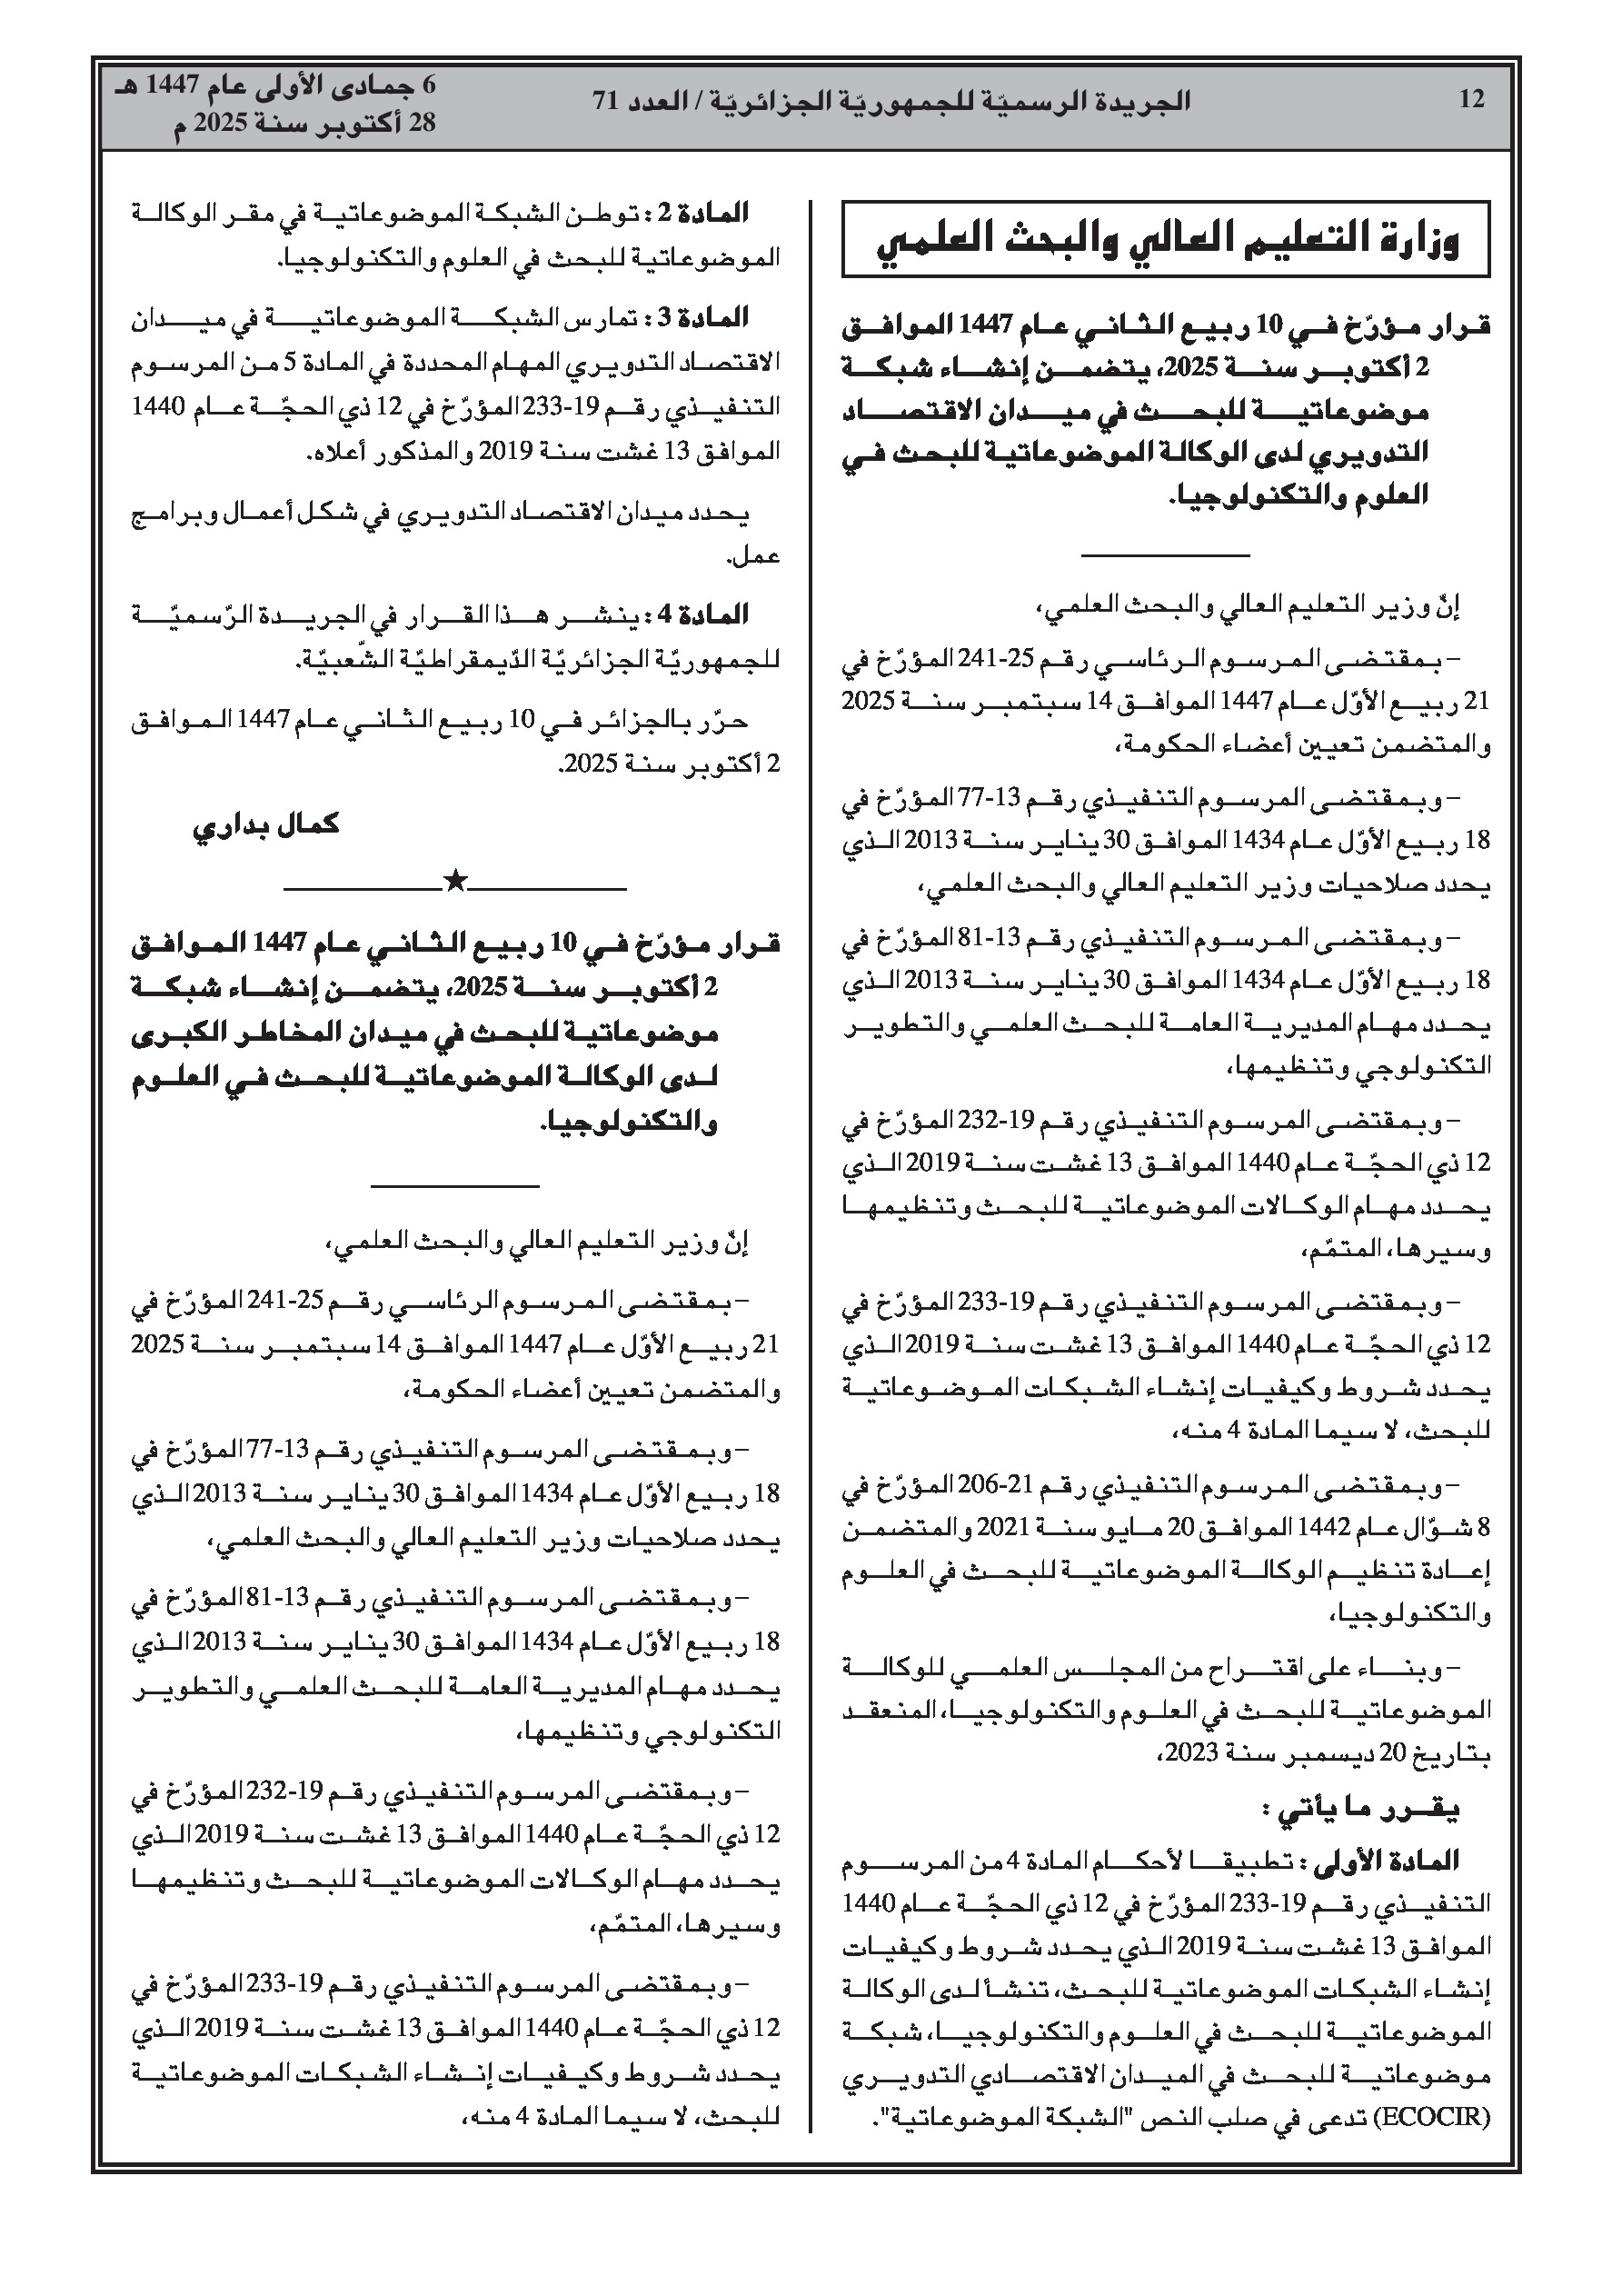 12
الجريدة الرسميّة للجمهوريّة الجزائريّة / العدد 71
6 جمادى الأولى عام 1447 هـ
28 أكتوبر سنة 2025 م
وزارة التعليم العالي والبحث العلمي
قرار مؤرّخ في 10 ربيع الثاني عام 1447 الموافق
2 أكتوبر سنة 2025، يتضمن إنشاء شبكة
موضوعاتية للبحث في ميدان الاقتصاد
التدويري لدى الوكالة الموضوعاتية للبحث في
العلوم والتكنولوجيا.
إنّ وزير التعليم العالي والبحث العلمي،
– بمقتضى المرسوم الرئاسي رقم 25-241 المؤرّخ في
21 ربيع الأوّل عام 1447 الموافق 14 سبتمبر سنة 2025
والمتضمن تعيين أعضاء الحكومة،
– وبمقتضى المرسوم التنفيذي رقم 13-77 المؤرّخ في
18 ربيع الأوّل عام 1434 الموافق 30 يناير سنة 2013 الذي
يحدد صلاحيات وزير التعليم العالي والبحث العلمي،
– وبمقتضى المرسوم التنفيذي رقم 13-81 المؤرّخ في
18 ربيع الأوّل عام 1434 الموافق 30 يناير سنة 2013 الذي
يحدد مهام المديرية العامة للبحث العلمي والتطوير
التكنولوجي وتنظيمها،
– وبمقتضى المرسوم التنفيذي رقم 19-232 المؤرّخ في
12 ذي الحجّة عام 1440 الموافق 13 غشت سنة 2019 الذي
يحدد مهام الوكالات الموضوعاتية للبحث وتنظيمها
وسيرها، المتمّم،
– وبمقتضى المرسوم التنفيذي رقم 19-233 المؤرّخ في
12 ذي الحجّة عام 1440 الموافق 13 غشت سنة 2019 الذي
يحدد شروط وكيفيات إنشاء الشبكات الموضوعاتية
للبحث، لا سيما المادة 4 منه،
– وبمقتضى المرسوم التنفيذي رقم 21-206 المؤرّخ في
8 شوّال عام 1442 الموافق 20 مايو سنة 2021 والمتضمن
إعادة تنظيم الوكالة الموضوعاتية للبحث في العلوم
والتكنولوجيا،
– وبناء على اقتراح من المجلس العلمي للوكالة
الموضوعاتية للبحث في العلوم والتكنولوجيا، المنعقد
بتاريخ 20 ديسمبر سنة 2023،
يقرر ما يأتي :
المادة الأولى : تطبيقا لأحكام المادة 4 من المرسوم
التنفيذي رقم 19-233 المؤرّخ في 12 ذي الحجّة عام 1440
الموافق 13 غشت سنة 2019 الذي يحدد شروط وكيفيات
إنشاء الشبكات الموضوعاتية للبحث، تنشأ لدى الوكالة
الموضوعاتية للبحث في العلوم والتكنولوجيا، شبكة
موضوعاتية للبحث في الميدان الاقتصادي التدويري
(ECOCIR) تدعى في صلب النص "الشبكة الموضوعاتية".
المادة 2 : توطن الشبكة الموضوعاتية في مقر الوكالة
الموضوعاتية للبحث في العلوم والتكنولوجيا.
المادة 3 : تمارس الشبكة الموضوعاتية في ميدان
الاقتصاد التدويري المهام المحددة في المادة 5 من المرسوم
التنفيذي رقم 19-233 المؤرّخ في 12 ذي الحجّة عام 1440
الموافق 13 غشت سنة 2019 والمذكور أعلاه.
يحدد ميدان الاقتصاد التدويري في شكل أعمال وبرامج
عمل.
المادة 4 : ينشر هذا القرار في الجريدة الرّسميّة
للجمهوريّة الجزائريّة الدّيمقراطيّة الشّعبيّة.
حرّر بالجزائر في 10 ربيع الثاني عام 1447 الموافق
2 أكتوبر سنة 2025.
كمال بداري
قرار مؤرّخ في 10 ربيع الثاني عام 1447 الموافق
2 أكتوبر سنة 2025، يتضمن إنشاء شبكة
موضوعاتية للبحث في ميدان المخاطر الكبرى
لدى الوكالة الموضوعاتية للبحث في العلوم
والتكنولوجيا.
إنّ وزير التعليم العالي والبحث العلمي،
– بمقتضى المرسوم الرئاسي رقم 25-241 المؤرّخ في
21 ربيع الأوّل عام 1447 الموافق 14 سبتمبر سنة 2025
والمتضمن تعيين أعضاء الحكومة،
– وبمقتضى المرسوم التنفيذي رقم 13-77 المؤرّخ في
18 ربيع الأوّل عام 1434 الموافق 30 يناير سنة 2013 الذي
يحدد صلاحيات وزير التعليم العالي والبحث العلمي،
– وبمقتضى المرسوم التنفيذي رقم 13-81 المؤرّخ في
18 ربيع الأوّل عام 1434 الموافق 30 يناير سنة 2013 الذي
يحدد مهام المديرية العامة للبحث العلمي والتطوير
التكنولوجي وتنظيمها،
– وبمقتضى المرسوم التنفيذي رقم 19-232 المؤرّخ في
12 ذي الحجّة عام 1440 الموافق 13 غشت سنة 2019 الذي
يحدد مهام الوكالات الموضوعاتية للبحث وتنظيمها
وسيرها، المتمّم،
– وبمقتضى المرسوم التنفيذي رقم 19-233 المؤرّخ في
12 ذي الحجّة عام 1440 الموافق 13 غشت سنة 2019 الذي
يحدد شروط وكيفيات إنشاء الشبكات الموضوعاتية
للبحث، لا سيما المادة 4 منه،